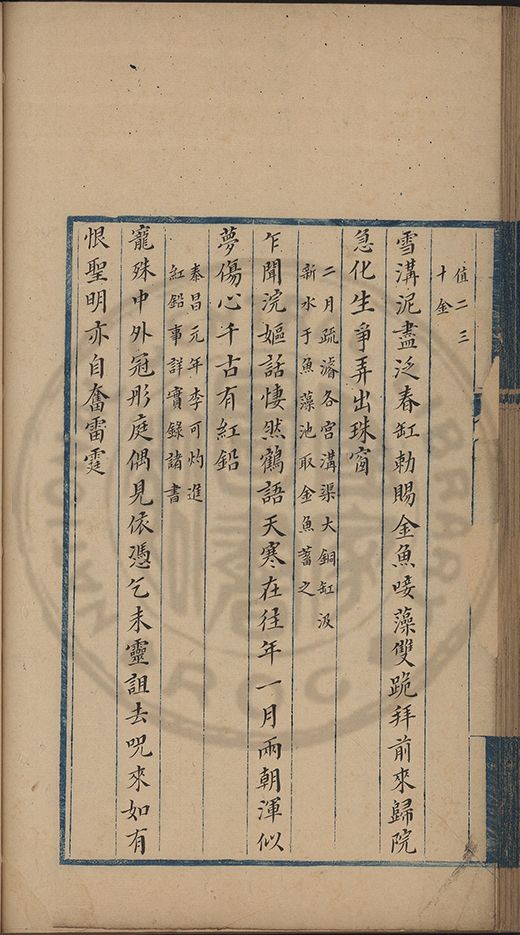 值二三
十金
雪溝泥盡泛春缸勅賜金魚唼藻雙跪拜前來歸院
急化生爭弄出珠窗
二月疏濬各宮溝渠大銅缸汲
新水于魚藻池取金魚蓄之
乍聞浣嫗話悽然鶴語天寒在往年一月兩朝渾似
夢傷心千古有紅鉛
泰昌元年李可灼進
紅鉛事詳實錄諸書
寵殊中外冠彤庭偶見依憑乞未靈詛去呪來如有
恨聖明亦自奮雷霆